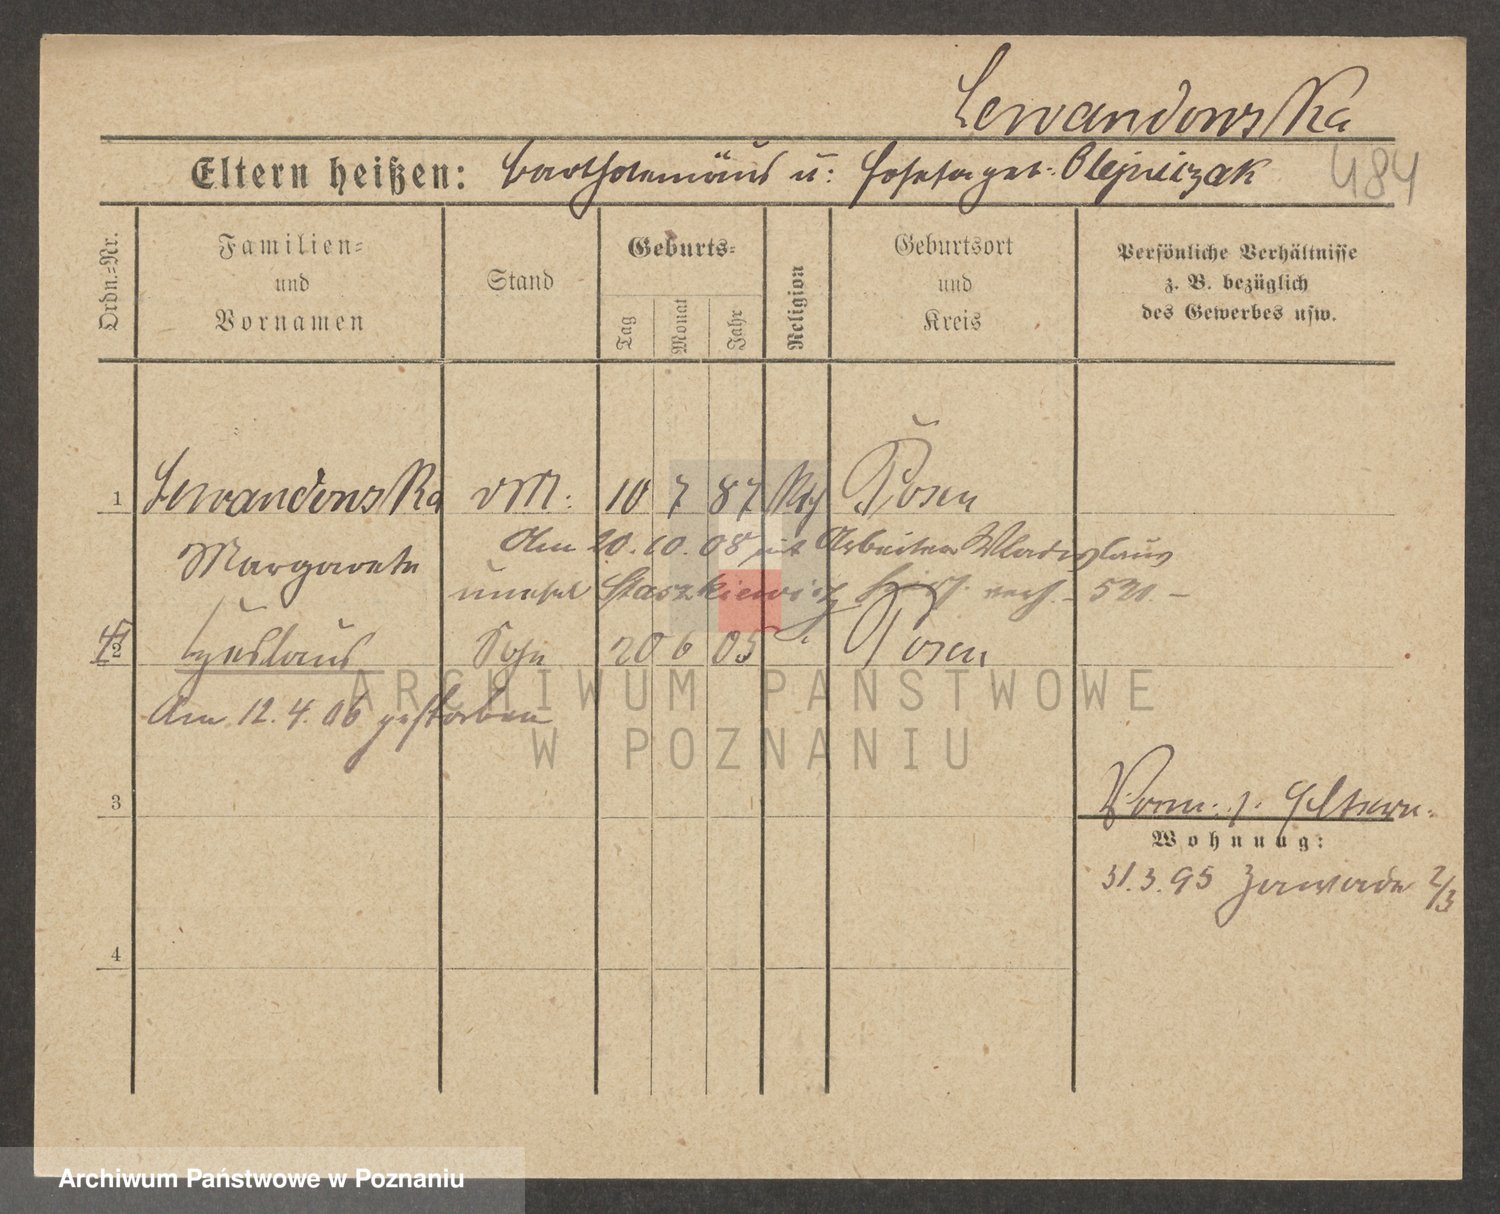 Lewandowska
Eltern heißen: Bartholomäus u: Josefa geb. Olejniczak
484
Ordn.=Nr.
Familien= und Vornamen
Stand
Geburts=
Tag
Monat
Jahr
Religion
Geburtsort und Kreis
Persönliche Verhältnisse
z. B. bezüglich
des Gewerbes usw.
1 Lewandowska 10 7 87 Kth Posen
Margarete
Am 20.10.08 mit Arbeiter Wladislaus
Staszkiewicz hier verh. - 521. -
2 Czeslaus Sohn 20 6 05 " Posen
Am 12.4.06 gestorben
3
Vorm. s. Eltern.
Wohnung:
31.3.95 Zawade 2/3
4
ARCHIWUM PAŃSTWOWE
W POZNANIU
Archiwum Państwowe w Poznaniu